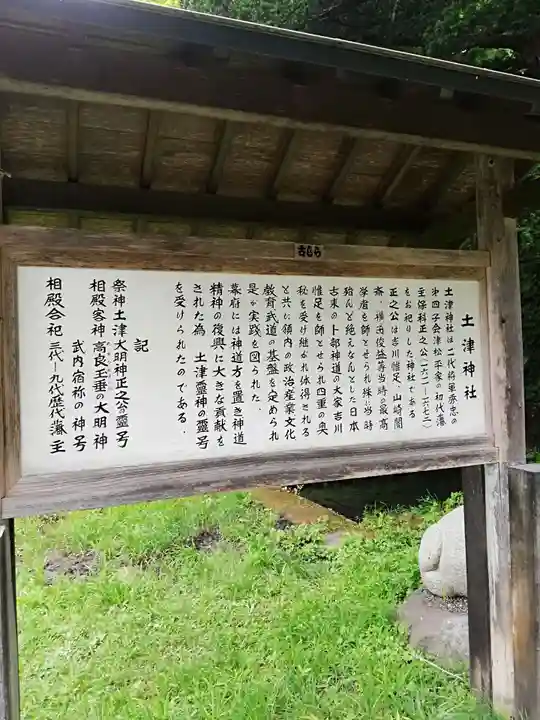 古じら
土津神社
土津神社は二代将軍秀忠の
第四子会津松平家の初代藩
主保科正之公(一六一一-一六七二)
をお祀りした神社である
正之公は吉川惟足、山崎闇
斎、横田俊益等当時の最高
学者を師とせられ殊に当時
殆んど絶えなんとした日本
古来の卜部神道の大家吉川
惟足を師とせられ四重の奥
秘を受け継がれ体得される
と共に領内の政治産業文化
教育武道の基盤を定められ
是が実践を図られた.
幕府には神道方を置き神道
精神の復興に大きな貢献を
された為 土津霊神の霊号
を受けられたのである.
記
祭神土津大明神正之公の霊号
相殿客神高良玉垂の大明神
武内宿祢の神号
相殿合祀 三代-九代歴代藩主